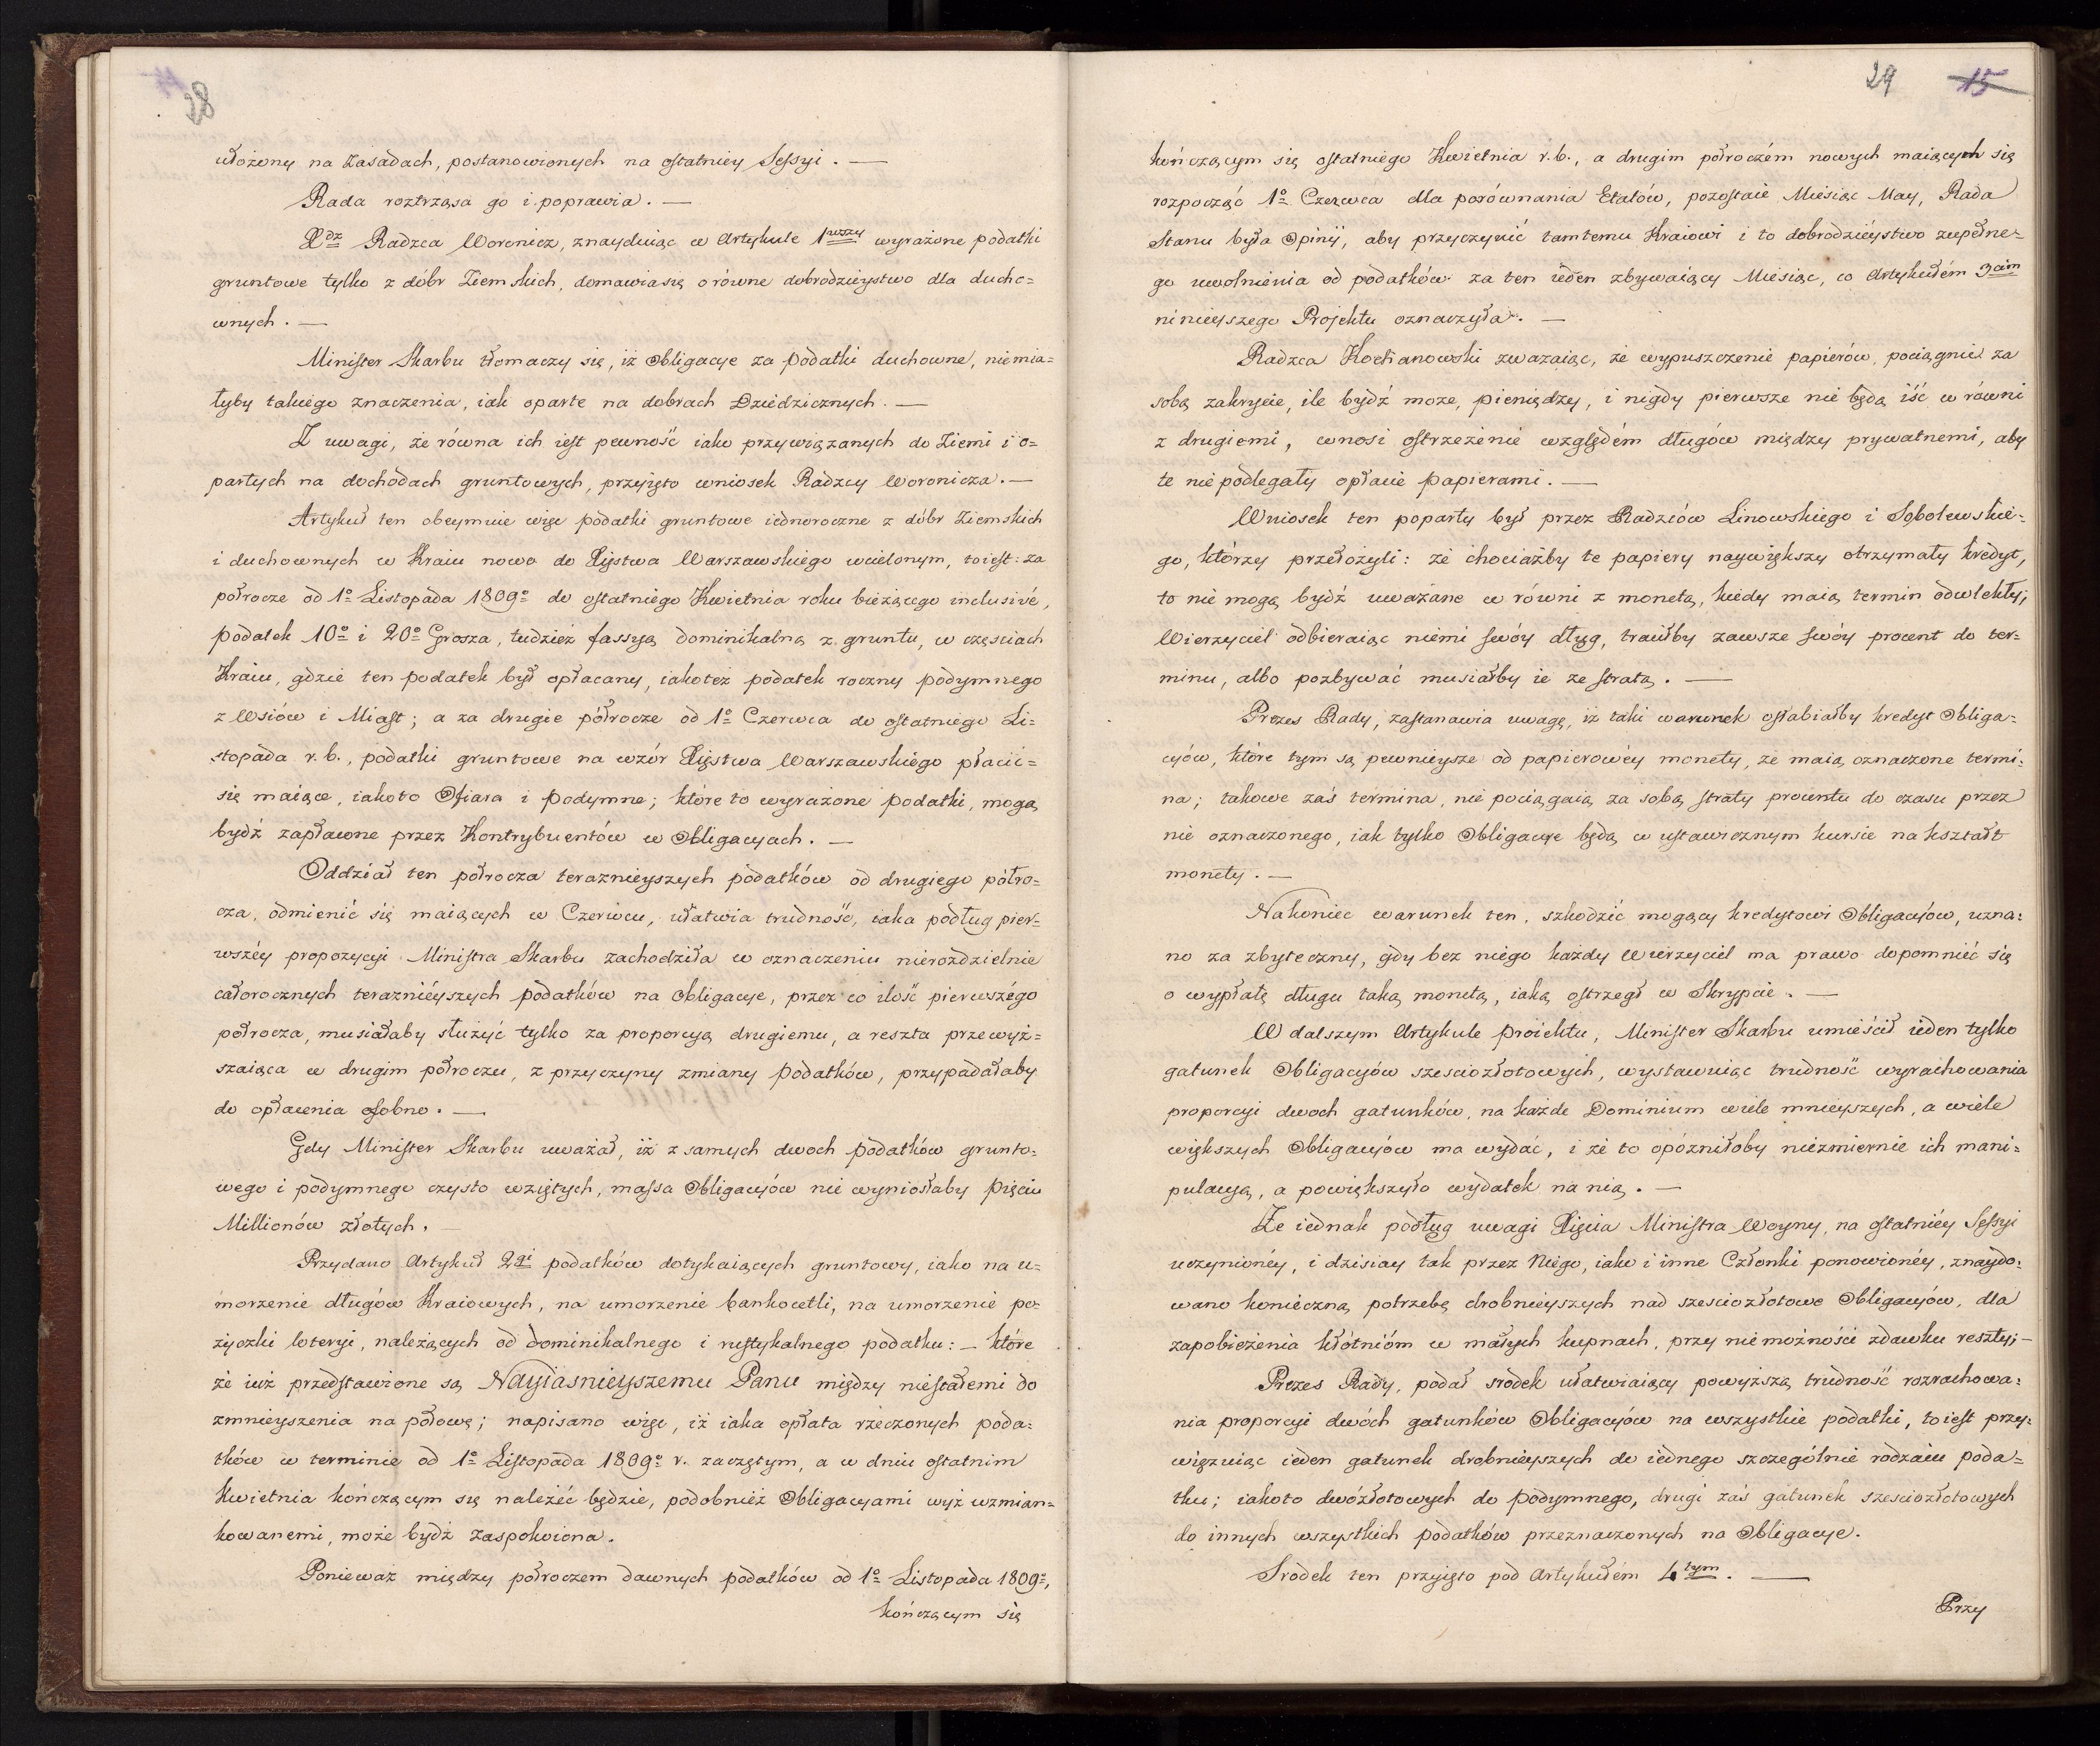 28
ułożony na zasadach, postanowionych na ostatniey Sessyi. —
Rada roztrząsa go i poprawia. —
Xdz Radzca Woronicz, znayduiąc w Artykule 1wszy wyrażone podatki
gruntowe tylko z dóbr Ziemskich, domawia się o równe dobrodzieystwo dla ducho=
wnych. —
Minister Skarbu tłomaczy się, iż Obligacye za podatki duchowne, niemia=
łyby takiego znaczenia, iak oparte na dobrach Dziedzicznych. —
Z uwagi, że równa ich iest pewność iako przywiązanych do Ziemi i o=
partych na dochodach gruntowych, przyięto wniosek Radzcy Woronicza. —
Artykuł ten obeymuie więc podatki gruntowe iednoroczne z dóbr Ziemskich
i duchownych w Kraiu nowo do Xięstwa Warszawskiego wcielonym, toiest: za
półrocze od 1o Listopada 1809o do ostatniego Kwietnia roku bieżącego inclusivé,
podatek 10o i 20o Grosza, tudzież fassyą dominikalną z gruntu, w częsciach
Kraiu, gdzie ten podatek był opłacany, iakoteż podatek roczny podymnego
z Wsiów i Miast; a za drugie półrocze od 1o Czerwca do ostatniego Li=
stopada r. b., podatki gruntowe na wzór Xięstwa Warszawskiego płacić=
się maiące, iakoto Ofiara i podymne; które to wyrażone podatki, mogą
bydź zapłacone przez Kontrybuentów w Obligacyach. —
Oddział ten półrocza teraznieyszych podatków od drugiego półro=
cza, odmienić się maiących w Czerwcu, ułatwia trudność, iaka podług pier=
wszéy propozycyi Ministra Skarbu zachodziła w oznaczeniu nierozdzielnie
całorocznych teraznieyszych podatków na Obligacye, przez co ilość pierwszégo
półrocza, musiałaby służyć tylko za proporcyą drugiemu, a reszta przewyż=
szaiąca w drugim półroczu, z przyczyny zmiany podatków, przypadałaby
do opłacenia osobno. —
Gdy Minister Skarbu uważał, iż z samych dwoch podatków grunto=
wego i podymnego czysto wziętych, massa Obligacyów nie wyniosłaby pięciu
Millionów złotych. —
Przydano Artykuł 2gi podatków dotykaiących gruntowy, iako na u=
morzenie długów Kraiowych, na umorzenie bankocetli, na umorzenie po=
życzki loteryi, należących od dominikalnego i rustykalnego podatku: — które
że iuż przedstawione są Nayiasnieyszemu Panu między niestałemi do
zmnieyszenia na połowę; napisano więc, iż iaka opłata rzeczonych poda=
tków w terminie od 1o Listopada 1809o r. zaczętym, a w dniu ostatnim
Kwietnia kończącym się należéć będzie, podobnież Obligacyami wyż wzmian=
kowanemi, może bydź zaspokoiona.
Ponieważ między półroczem dawnych podatków od 1o Listopada 1809o,
kończącym się
29 15
kończącym się ostatniego Kwietnia r. b., a drugim półroczém nowych maiących się
rozpocząć 1o Czerwca dla porównania Etatów, pozostaie Miesiąc May, Rada
Stanu była Opinij, aby przyczynić tamtemu Kraiowi i to dobrodzieystwo zupełne=
go uwolnienia od podatków za ten ieden zbywaiący Miesiąc, co Artykułém 3cim
ninieyszego Projektu oznaczyła. —
Radzca Kochanowski zwazaiąc, że wypuszczenie papierów, pociągnie za
sobą zakrycie, ile bydź moze, pieniędzy, i nigdy pierwsze nie będą iść w równi
z drugiemi, wnosi ostrzeżenie względém długów między prywatnemi, aby
te nie podlegały opłacie papierami. —
Wniosek ten poparty był przez Radzców Linowskiego i Sobolewskie=
go, którzy przełożyli: że chociażby te papiery naywiększy otrzymały kredyt,
to nie mogą bydź uważane w równi z monetą, kiedy maią termin odwlekły;
Wierzyciel odbieraiąc niemi swóy dług, traciłby zawsze swóy procent do ter=
minu, albo pozbywać musiałby ie ze stratą. —
Prezes Rady, zastanawia uwagę, iż taki warunek osłabiałby kredyt Obliga=
cyów, które tym są pewnieysze od papierowéy monety, że maią oznaczone termi=
na; takowe zaś termina, nie pociągaią za sobą straty procentu do czasu przez
nie oznaczonego, iak tylko Obligacye będą w ustawicznym kursie na kształt
monety. —
Nakoniec warunek ten, szkodzić mogący kredytowi Obligacyów, uzna=
no za zbyteczny, gdy bez niego każdy Wierzyciel ma prawo dopomnieć się
o wypłatę długu taką monetą, iaką ostrzegł w Skrypcie. —
W dalszym Artykule proiektu, Minister Skarbu umieścił ieden tylko
gatunek Obligacyów szesciozłotowych, wystawuiąc trudność wyrachowania
proporcyi dwoch gatunków, na każde Dominium wiele mnieyszych, a wiele
większych Obligacyów ma wydać, i że to opózniłoby niezmiernie ich mani=
pulacyą, a powiększyło wydatek na nią. —
Ze iednak podług uwagi Xięcia Ministra Woyny, na ostatniéy Sessyi
uczynionéy, i dzisiay tak przez Niego, iako i inne Członki ponowionéy, znaydo=
wano konieczną potrzebę drobnieyszych nad szesciozłotowe Obligacyów, dla
zapobieżenia kłótnióm w małych kupnach, przy niemożności zdawku reszty; —
Prezes Rady, podał srodek ułatwiaiący powyższą trudność rozrachowa=
nia proporcyi dwóch gatunków Obligacyów na wszystkie podatki, toiest przy=
więzuiąc ieden gatunek drobnieyszych do iednego szczególnie rodzaiu poda=
tku; iakoto dwózłotowych do podymnego, drugi zaś gatunek szesciozłotowych
do innych wszystkich podatków przeznaczonych na Obligacye.
Srodek ten przyięto pod Artykułém 4tym. —
Przy